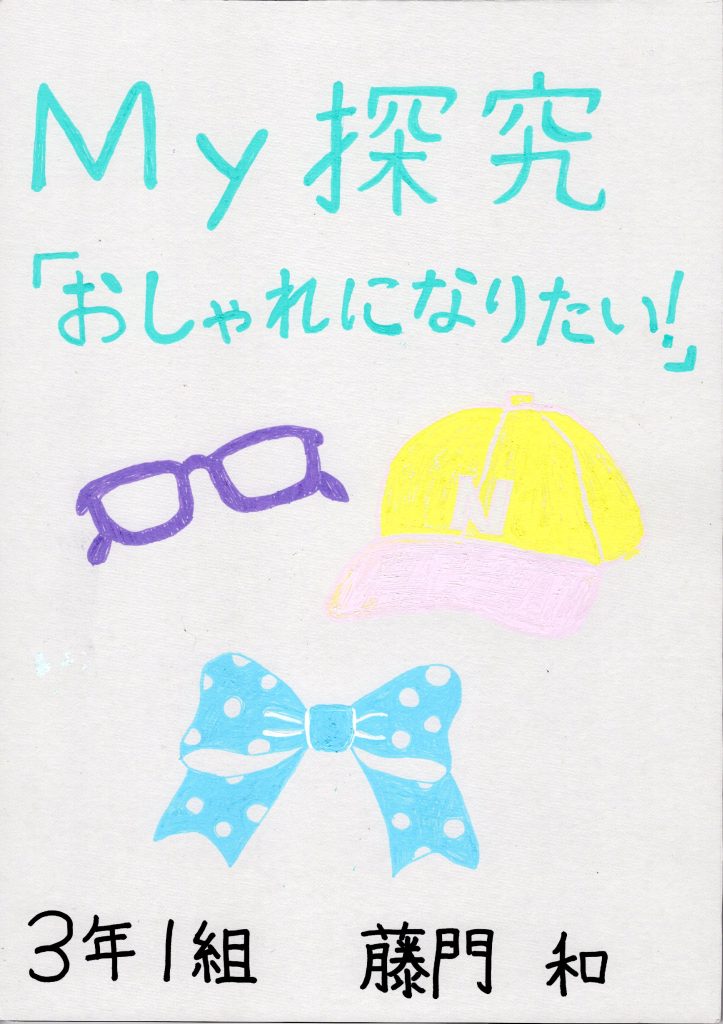 My探究
「おしゃれになりたい!」
N
3年1組 藤門 和